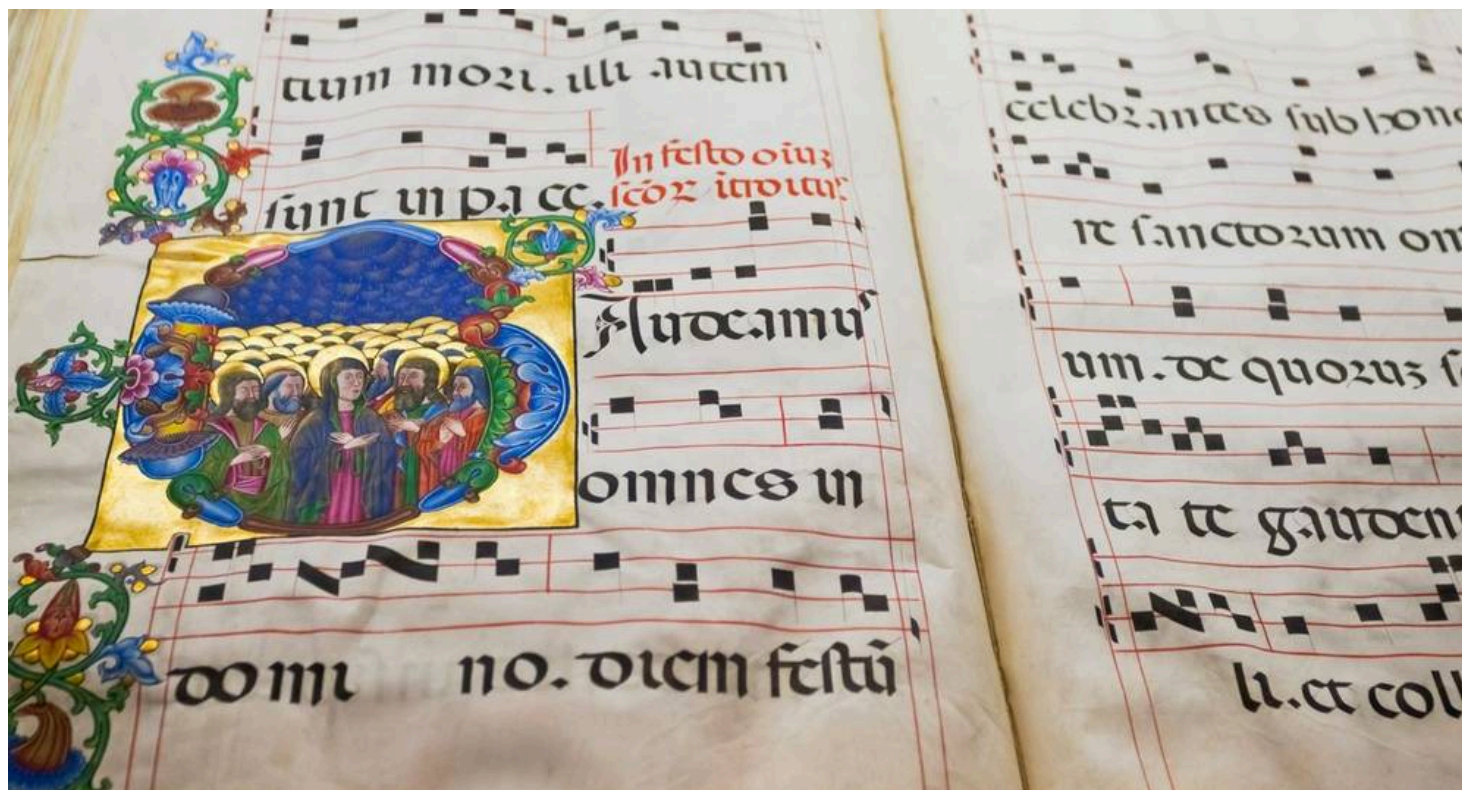 tium mori. illi autem
sunt in pa ce. In festo oiuz
scoꝝ itroitus
Audeamus
omnes in
domi no. diem festū
celebrantes sub hono
re sanctorum om
um. de quoruz s
ta te gauden
li. et coll